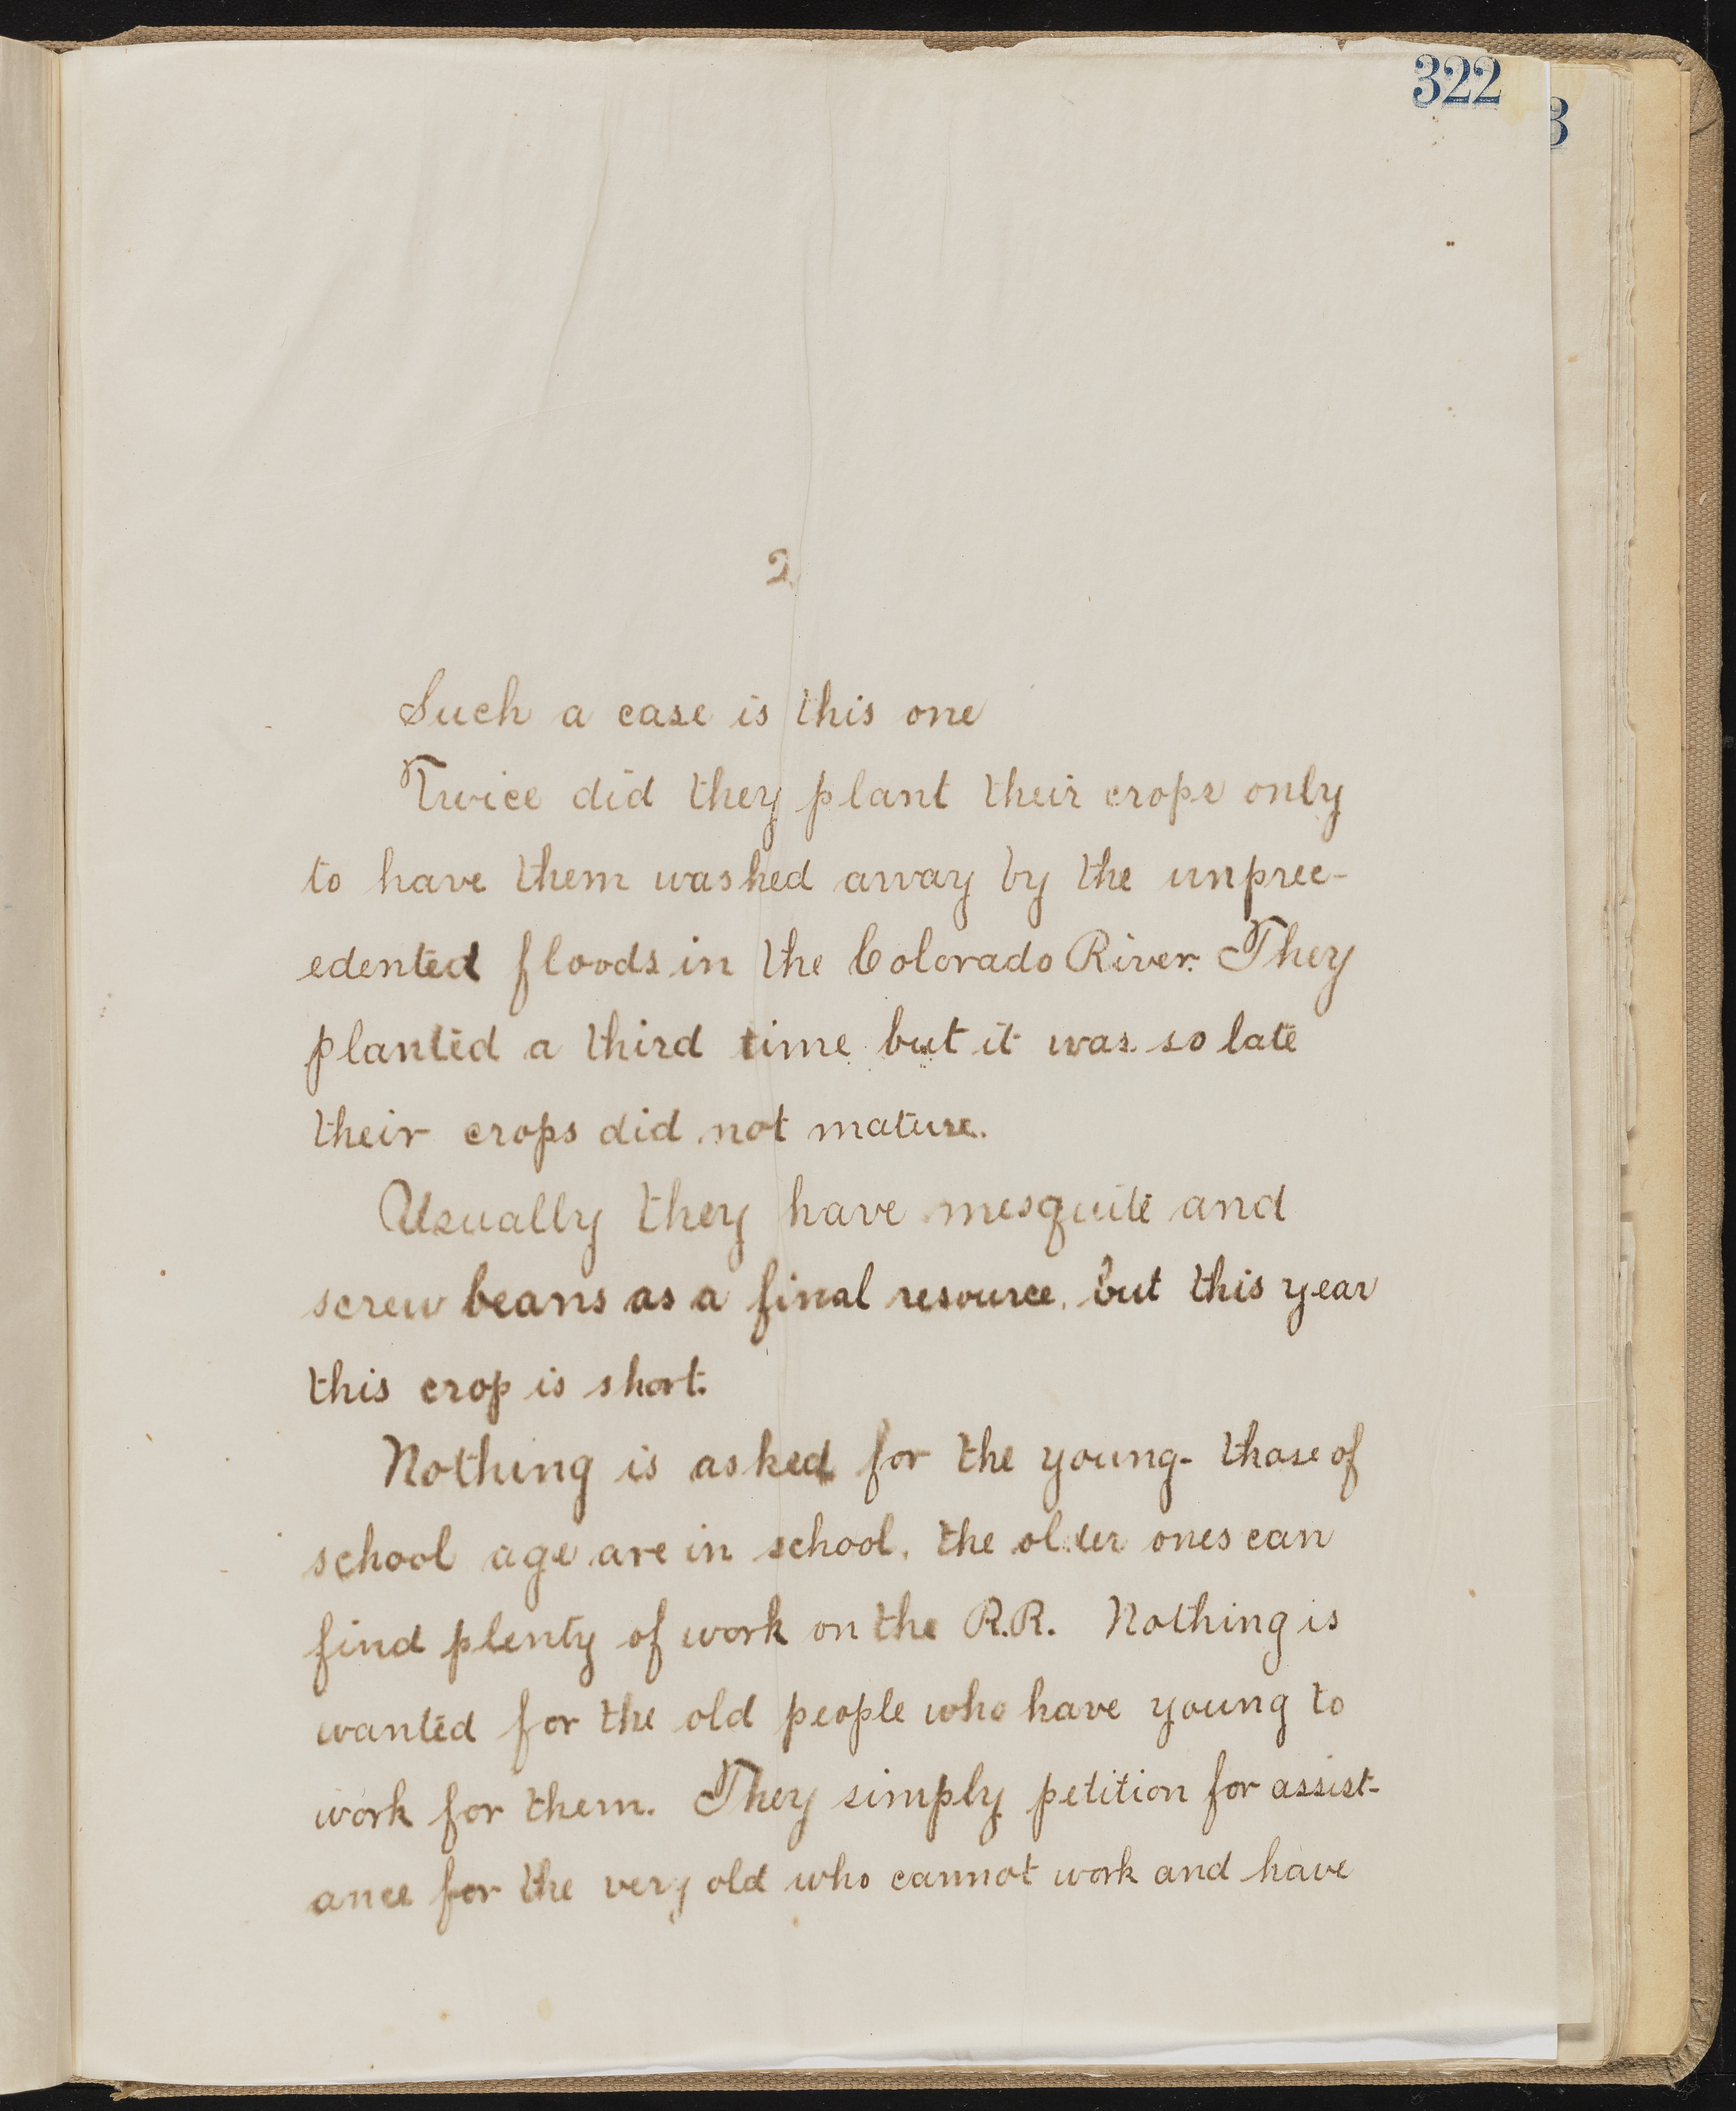 322
3
2
Such a case is this one
Twice did they plant their crops only
to have them washed away by the unprec-
edented floods in the Colorado River. They
planted a third time but it was so late
their crops did not mature.
Usually they have mesquite and
screw beans as a final resource, but this year
this crop is short.
Nothing is asked for the young - those of
school age are in school, the older ones can
find plenty of work on the R.R. Nothing is
wanted for the old people who have young to
work for them. They simply petition for assist-
ance for the very old who cannot work and have